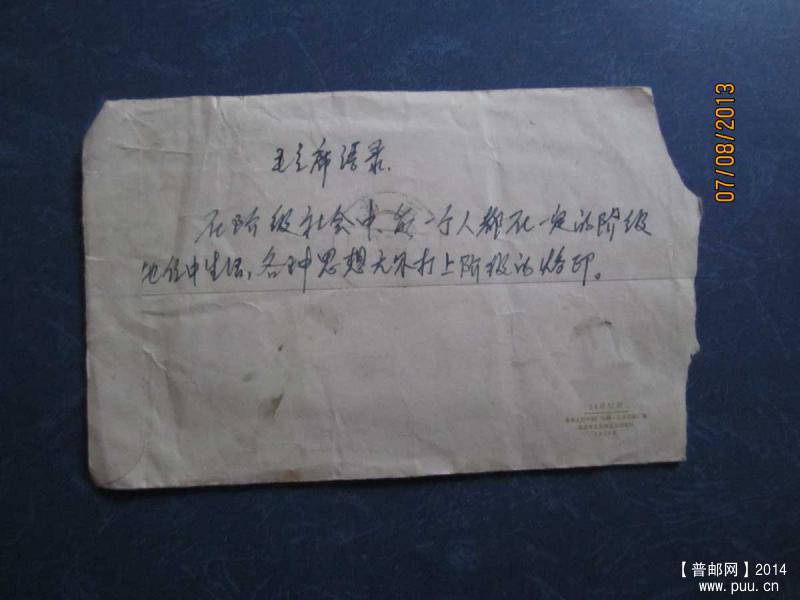 毛主席语录.
在阶级社会中,每一个人都在一定的阶级
地位中生活,各种思想无不打上阶级的烙印。
07/08/2013
【普邮网】2014
www.puu.cn